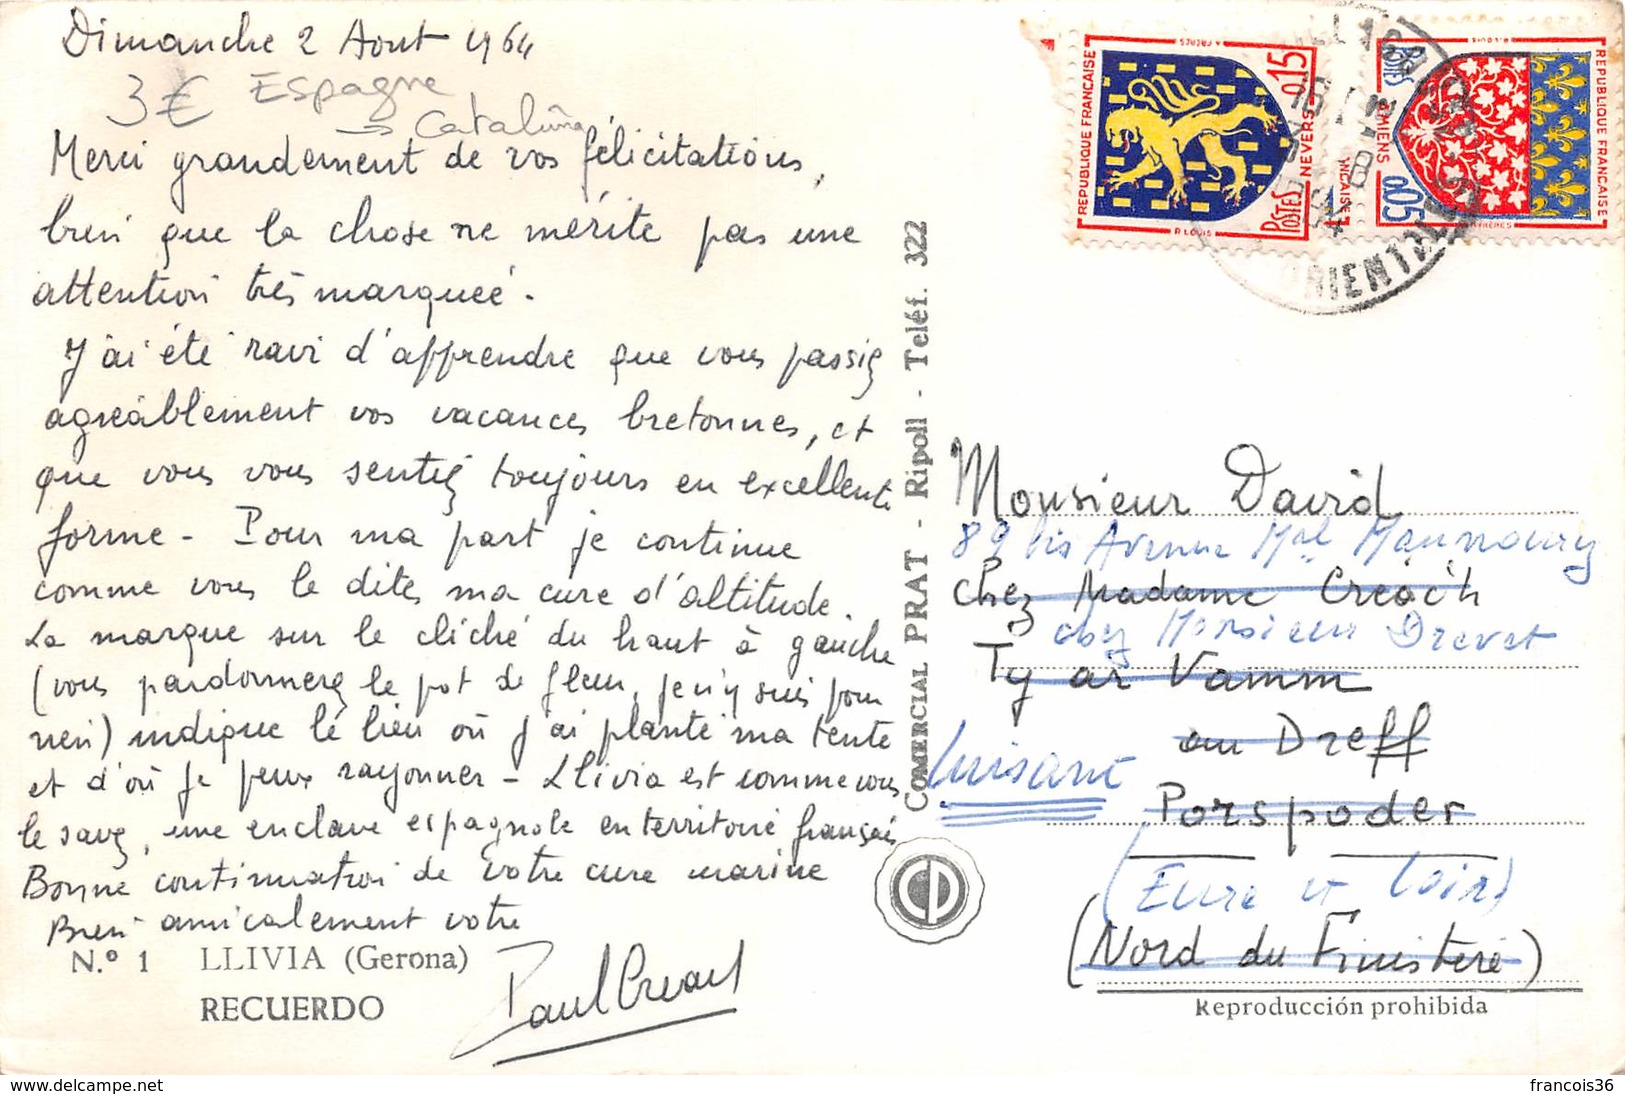 Dimanche 2 Aout 1964
3€ Espagne
→ Cataluña
Merci grandement de vos félicitations,
bien que la chose ne mérite pas une
attention très marquée.
J'ai été ravi d'apprendre que vous passiez
agréablement vos vacances bretonnes, et
que vous vous sentiez toujours en excellente
forme - Pour ma part je continue
comme vous le dites ma cure d'altitude.
La marque sur le cliché du haut à gauche
(vous pardonnerez le pot de fleur, je n'y suis pour
rien) indique le lieu où j'ai planté ma tente
et d'où je peux rayonner - Llivia est comme vous
le savez, une enclave espagnole en territoire français
Bonne continuation de votre cure marine
Bien amicalement votre
N.º 1 LLIVIA (Gerona)
RECUERDO
COMERCIAL PRAT - Ripoll - Teléf. 322
CP
REPUBLIQUE FRANÇAISE
0,15
NEVERS
POSTES
R. LOUIS
REPUBLIQUE FRANÇAISE
POSTES
AMIENS
0,05
ORIENTALES
Monsieur David
89 bis Avenue Mal Maunoury
Chez Madame Creac'h
chez Monsieur Drevet
Ty ar Vamm
an Dreff
Luisant
Porspoder
(Eure et Loir)
(Nord du Finistère)
Reproducción prohibida
www.delcampe.net
francois36